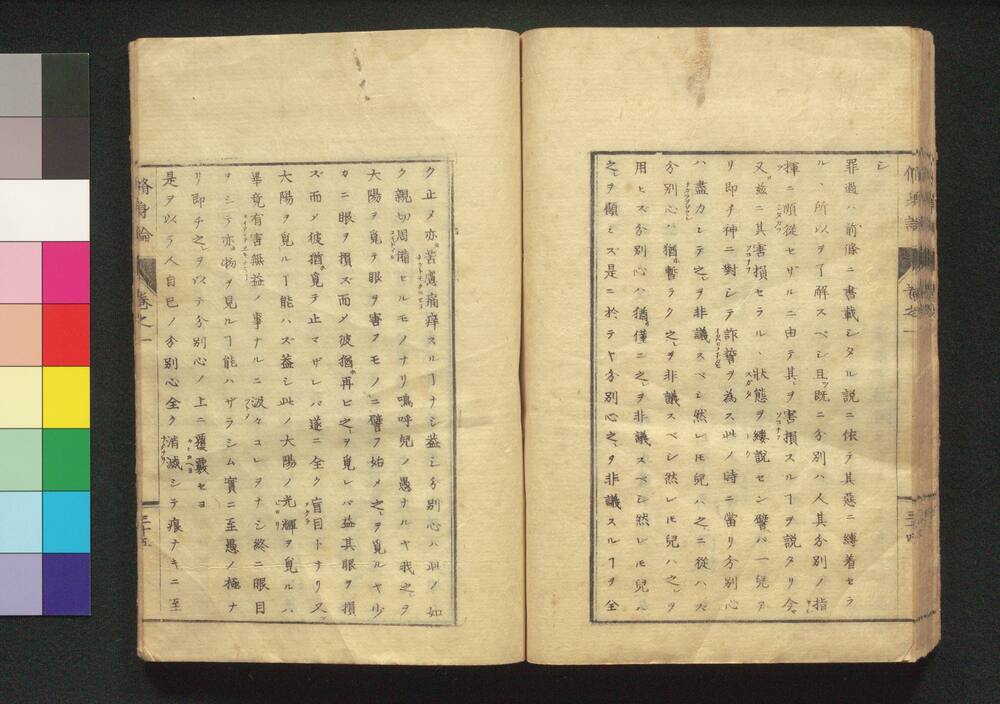 シ
罪過ハ前條ニ書載シタル説ニ依テ其惡ニ縛着セラ
ルヽ所以ヲ了解スベシ且ツ既ニ分別ハ人其分別ノ指
揮ニ順從セザルニ由テ其ヲ害損スルヿヲ説タリ今
又茲ニ其害損セラルヽ狀態ヲ縷説セン譬バ一兒ア
リ即チ神ニ對シテ詐誓ヲ為ス此ノ時ニ當リ分別心
ハ盡力シテ之ヲ非議スベシ然レ𪜈兒ハ之ニ從ハズ
分別心ハ猶暫ラク之ヲ非議スベシ然レ𪜈兒ハ之ヲ
用ヒズ分別心ハ猶僅ニ之ヲ非議スベシ然レ𪜈兒ハ
之ヲ顧ミズ是ニ於テヤ分別心之ヲ非議スルヿヲ全
卷之一
三十四
ク止メ亦苦慮痛痒スルヿナシ蓋シ分別心ハ此ノ如
ク親切周備セルモノナリ嗚呼兒ノ愚ナルヤ我之ヲ
大陽ヲ覓ヲ眼ヲ害フモノニ譬フ始メ之ヲ覓ルヤ少
カニ眼ヲ損ズ而メ彼猶再ヒ之ヲ覓レバ益其眼ヲ損
ズ而メ彼猶覓テ止マザレバ遂ニ全ク盲目トナリ又
大陽ヲ覓ルヿ能ハズ蓋シ此ノ大陽ノ光輝ヲ覓ルハ
畢竟有害無益ノ事ナルニ汲々コレヲナシ終ニ眼目
ヲシテ亦物ヲ見ルヿ能ハザラシム實ニ至愚ノ極ナ
リ即チ之ヲ以テ分別心ノ上ニ覆覈セヨ
是ヲ以テ人自己ノ分別心全ク消滅シテ痕ナキニ至
脩身論
卷之一
三十五